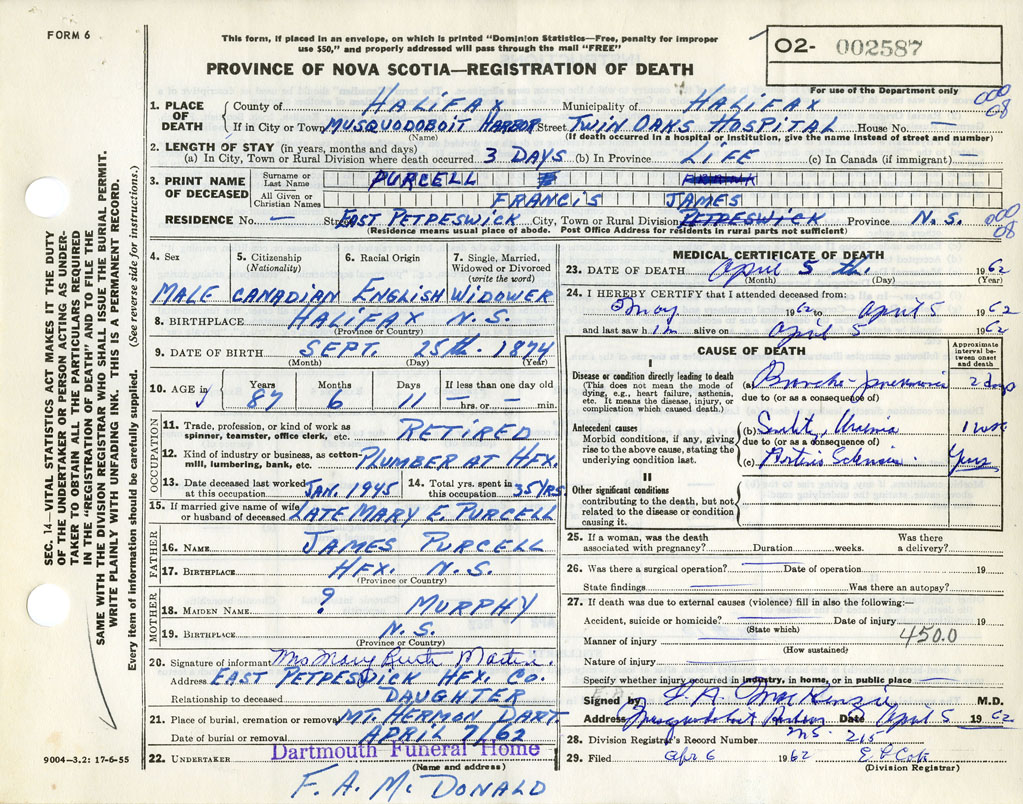 FORM 6
This form, if placed in an envelope, on which is printed "Dominion Statistics—Free, penalty for improper
use $50," and properly addressed will pass through the mail "FREE"
02- 002587
PROVINCE OF NOVA SCOTIA—REGISTRATION OF DEATH
For use of the Department only
1. PLACE OF DEATH
County of HALIFAX Municipality of HALIFAX
000
08
If in City or Town MUSQUODOBOIT HARBOR Street TWIN OAKS HOSPITAL House No. —
(Name) (If death occurred in a hospital or institution, give the name instead of street and number)
2. LENGTH OF STAY (in years, months and days)
(a) In City, Town or Rural Division where death occurred 3 DAYS (b) In Province LIFE (c) In Canada (if immigrant) —
3. PRINT NAME OF DECEASED
Surname or Last Name PURCELL
All Given or Christian Names FRANCIS JAMES
RESIDENCE No. — Street EAST PETPESWICK City, Town or Rural Division PETPESWICK Province N.S.
000
08
(Residence means usual place of abode. Post Office Address for residents in rural parts not sufficient)
4. Sex 5. Citizenship (Nationality) 6. Racial Origin 7. Single, Married, Widowed or Divorced (write the word)
MALE CANADIAN ENGLISH WIDOWER
8. BIRTHPLACE HALIFAX N.S.
(Province or Country)
9. DATE OF BIRTH SEPT. 25th. 1874
(Month) (Day) (Year)
10. AGE in Years Months Days If less than one day old
87 6 11 — hrs. or — min.
OCCUPATION
11. Trade, profession, or kind of work as spinner, teamster, office clerk, etc. RETIRED
12. Kind of industry or business, as cotton-mill, lumbering, bank, etc. PLUMBER AT HFX.
13. Date deceased last worked at this occupation JAN. 1945 14. Total yrs. spent in this occupation 35 YRS.
15. If married give name of wife or husband of deceased LATE MARY E. PURCELL
FATHER
16. NAME JAMES PURCELL
17. BIRTHPLACE HFX. N.S.
(Province or Country)
MOTHER
18. MAIDEN NAME ? MURPHY
19. BIRTHPLACE N.S.
(Province or Country)
20. Signature of informant Mrs Mary Ruth Martin.
Address EAST PETPESWICK HFX. CO.
Relationship to deceased DAUGHTER
21. Place of burial, cremation or removal MT. HERMON DART
Date of burial or removal APRIL 7/62
22. UNDERTAKER Dartmouth Funeral Home
(Name and address)
F. A. McDONALD
9004—3.2: 17-6-55
MEDICAL CERTIFICATE OF DEATH
23. DATE OF DEATH April 5 th. 1962
(Month) (Day) (Year)
24. I HEREBY CERTIFY that I attended deceased from:
May 1962 to April 5 1962
and last saw him alive on April 5 1962
CAUSE OF DEATH
Approximate interval between onset and death
I
Disease or condition directly leading to death
(This does not mean the mode of dying, e.g., heart failure, asthenia, etc. It means the disease, injury, or complication which caused death.)
(a) Broncho-pneumonia 2 days
due to (or as a consequence of)
Antecedent causes
Morbid conditions, if any, giving rise to the above cause, stating the underlying condition last.
(b) Senility, Uraemia 1 wk
due to (or as a consequence of)
(c) Arterio Sclerosis. Yrs
II
Other significant conditions
contributing to the death, but not related to the disease or condition causing it.
25. If a woman, was the death associated with pregnancy? Duration weeks. Was there a delivery?
26. Was there a surgical operation? Date of operation 19
State findings Was there an autopsy?
27. If death was due to external causes (violence) fill in also the following:—
Accident, suicide or homicide? Date of injury 19
(State which)
Manner of injury 450.0
(How sustained)
Nature of injury
Specify whether injury occurred in industry, in home, or in public place
Signed by A. McKenzie M.D.
Address Musquodoboit Harbour N.S. Date April 5 1962
28. Division Registrar's Record Number 215
29. Filed Apr 6 1962
(Division Registrar)
SEC. 14—VITAL STATISTICS ACT MAKES IT THE DUTY
OF THE UNDERTAKER OR PERSON ACTING AS UNDER-
TAKER TO OBTAIN ALL THE PARTICULARS REQUIRED
IN THE "REGISTRATION OF DEATH" AND TO FILE THE
SAME WITH THE DIVISION REGISTRAR WHO SHALL ISSUE THE BURIAL PERMIT.
WRITE PLAINLY WITH UNFADING INK. THIS IS A PERMANENT RECORD.
Every item of information should be carefully supplied. (See reverse side for instructions.)